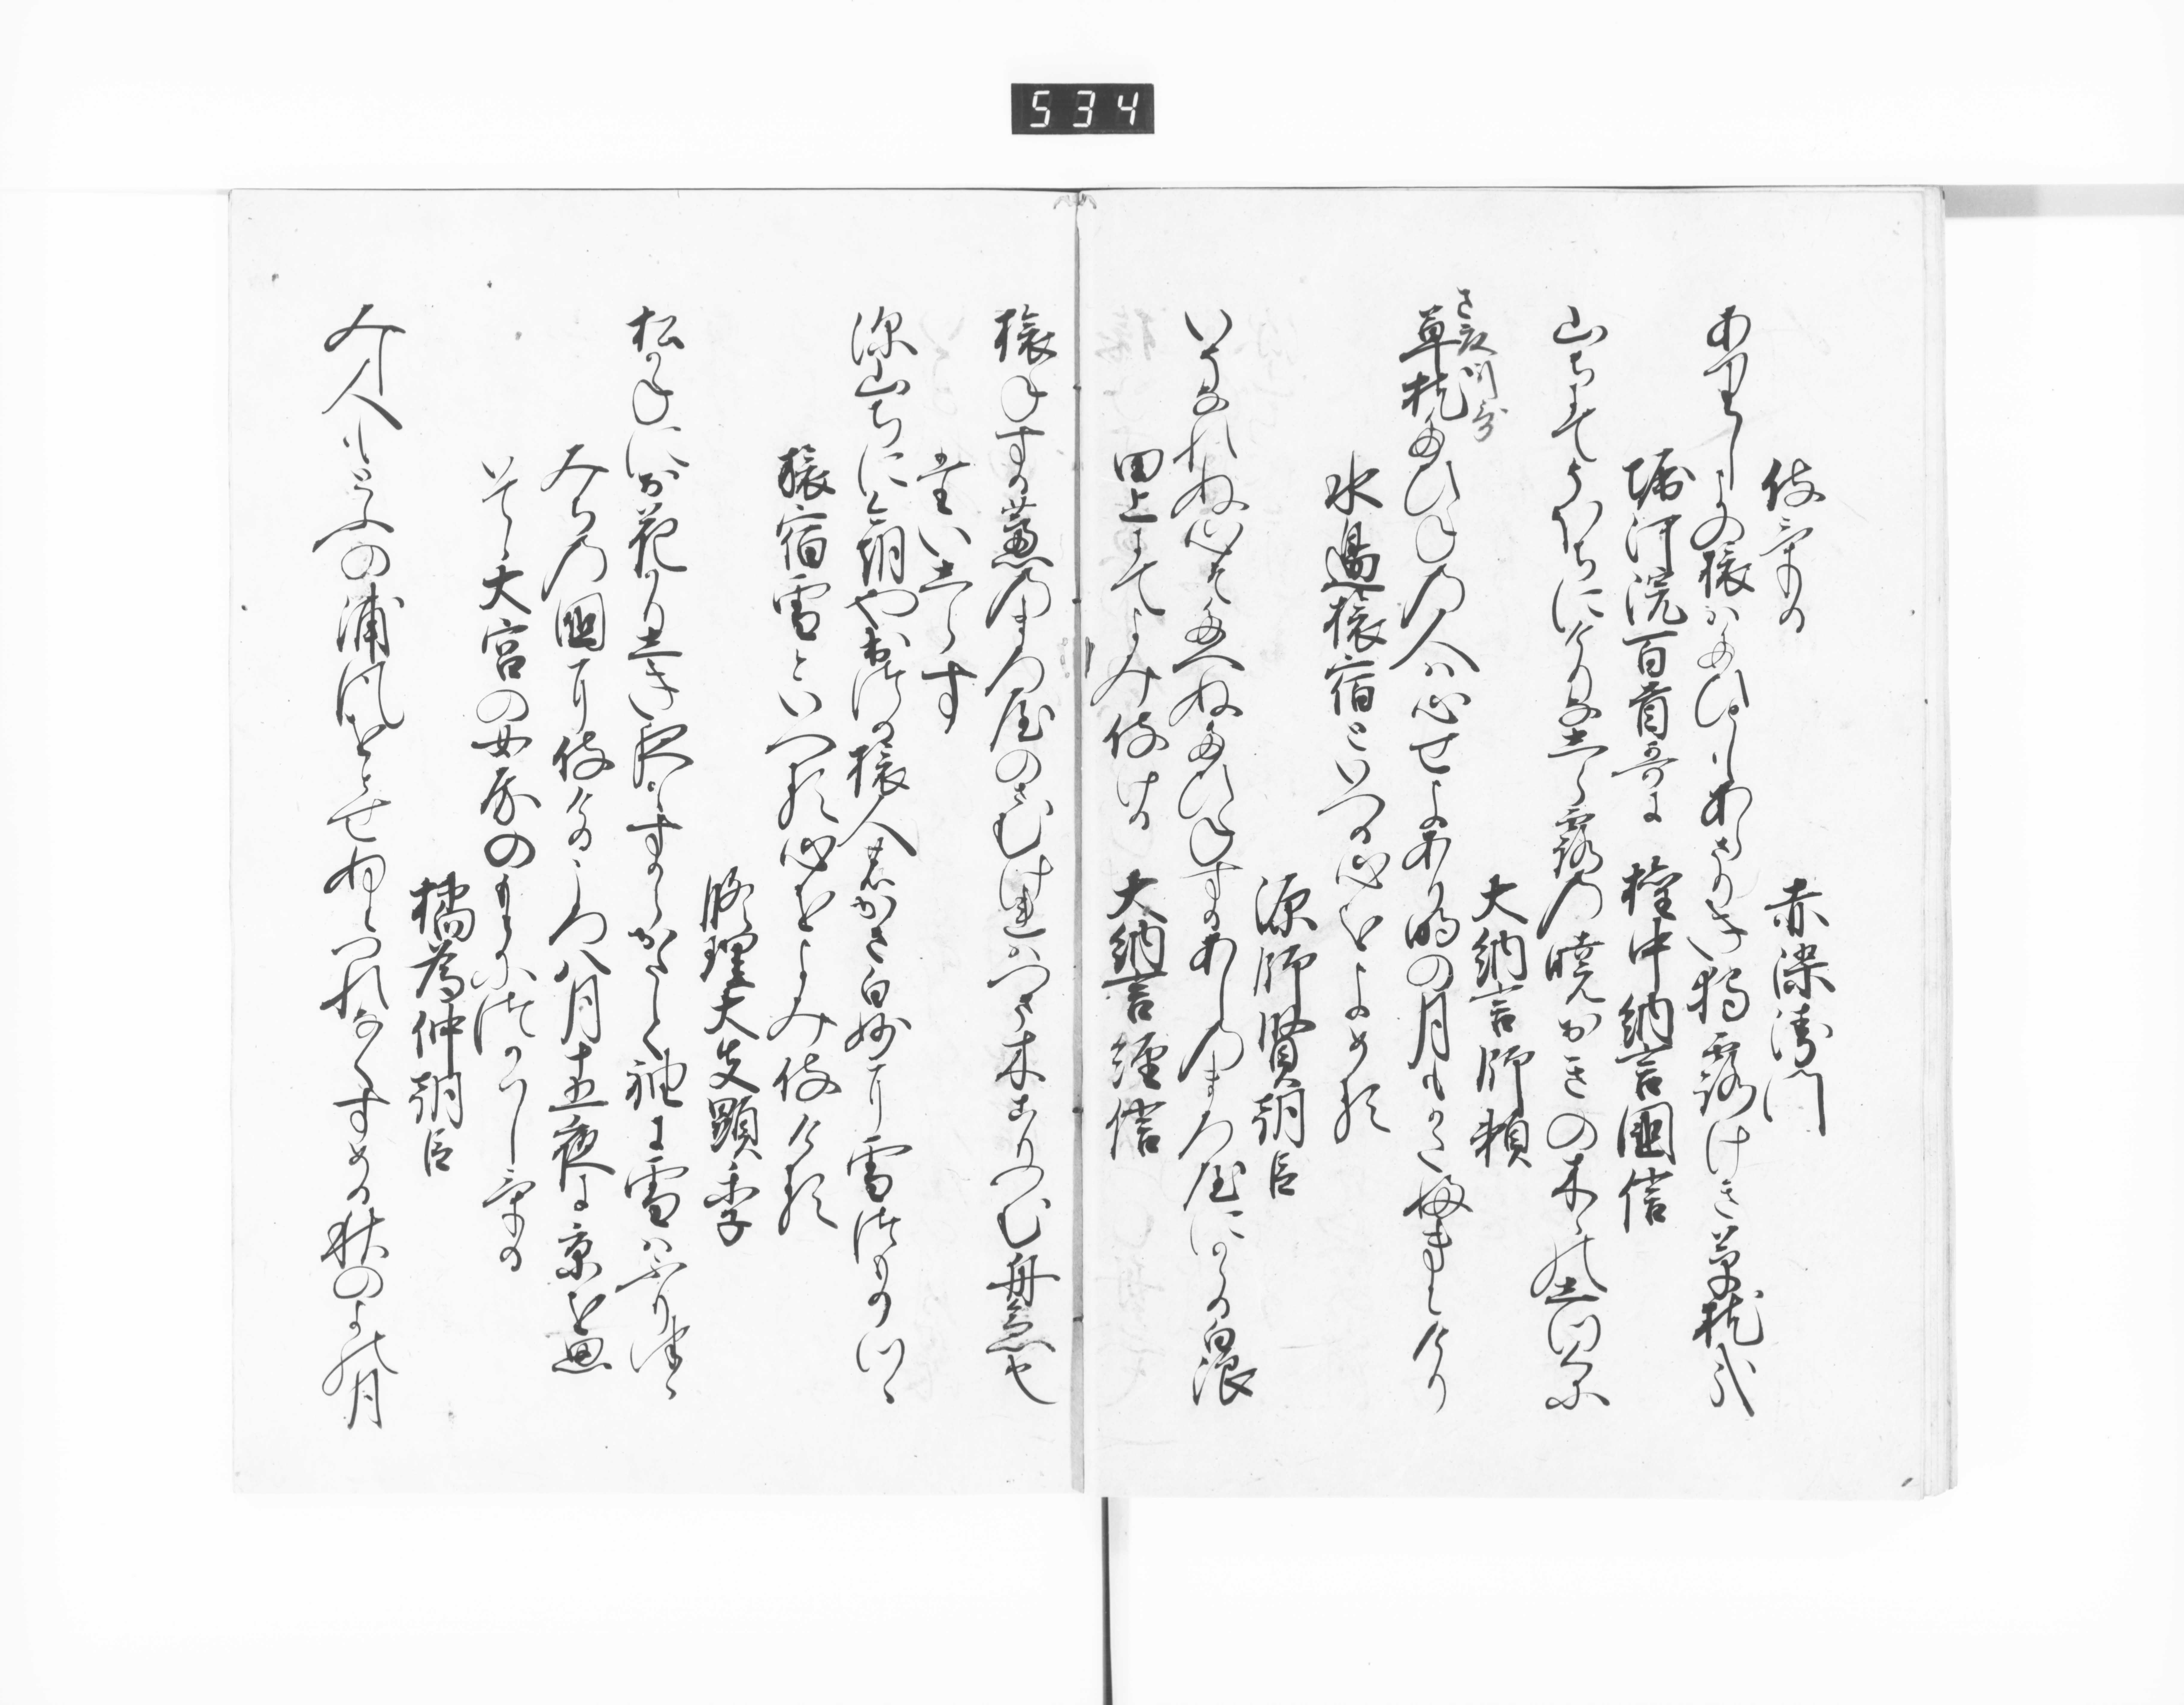 534
侍ける
赤染衛門
ありしよの旅はたひともあらさりきひとり露けき草枕哉
堀河院百首哥に
権中納言国信
山ちにてそほちにけりな白露の暁おきの木々のしつくに
大納言師頼
さ夜ノ川ニ
草枕たひねの人は心せよあり明の月もかたふきにけり
水邊旅宿といへる心をよめる
源師賢朝臣
いそなれぬ心そたへぬたひねするあしのまろ屋にかゝる白浪
田上にてよみ侍ける
大納言経信
旅ねする蘆のまろ屋のさむけれはつま木こりつむ舟急也
題しらす
深山ちに今朝や出つる旅人のかさ白妙に雪つもりつゝ
旅宿雪といへる心をよみ侍ける
修理大夫顕季
松かねにお花かりしき夜もすからかたしく袖に雪はふりつゝ
みちの国に侍けるころ八月十五夜に京を思
いてゝ大宮の女房のもとにつかはしける
橘為仲朝臣
みし人もとふの浦風をとせぬにつれなくすめる秋のよの月